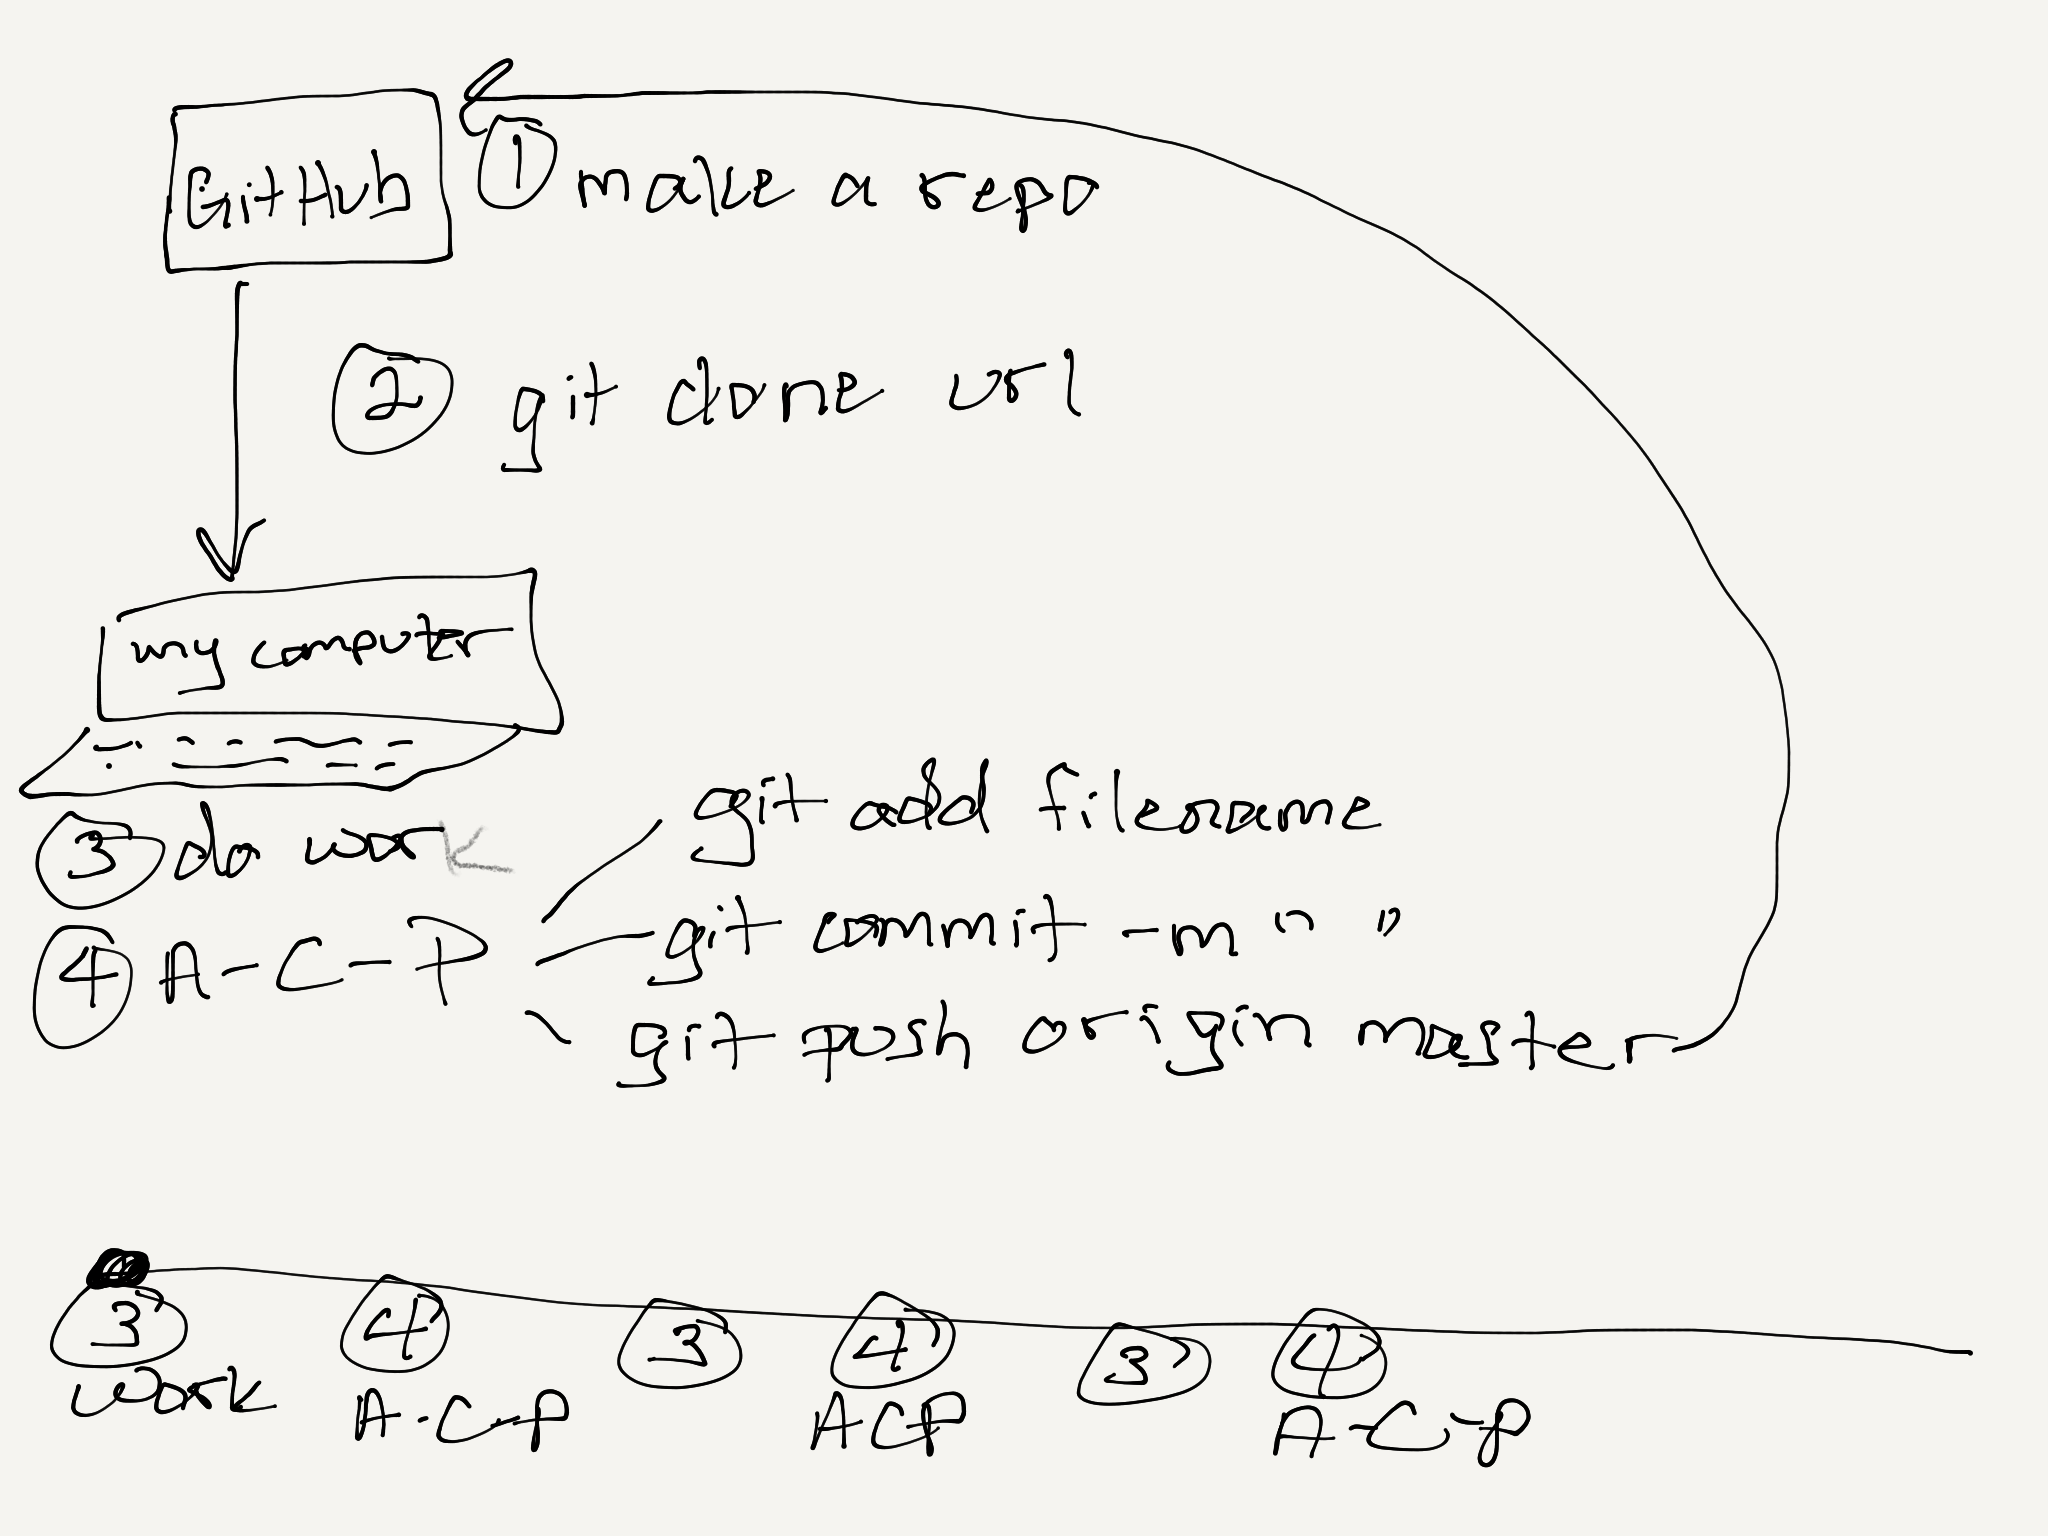 GitHub
1 make a repo
2 git clone url
my computer
3 do work
4 A-C-P
git add filename
git commit -m " "
git push origin master
3 4 3 4 3 4
work A-C-P ACP A-C-P